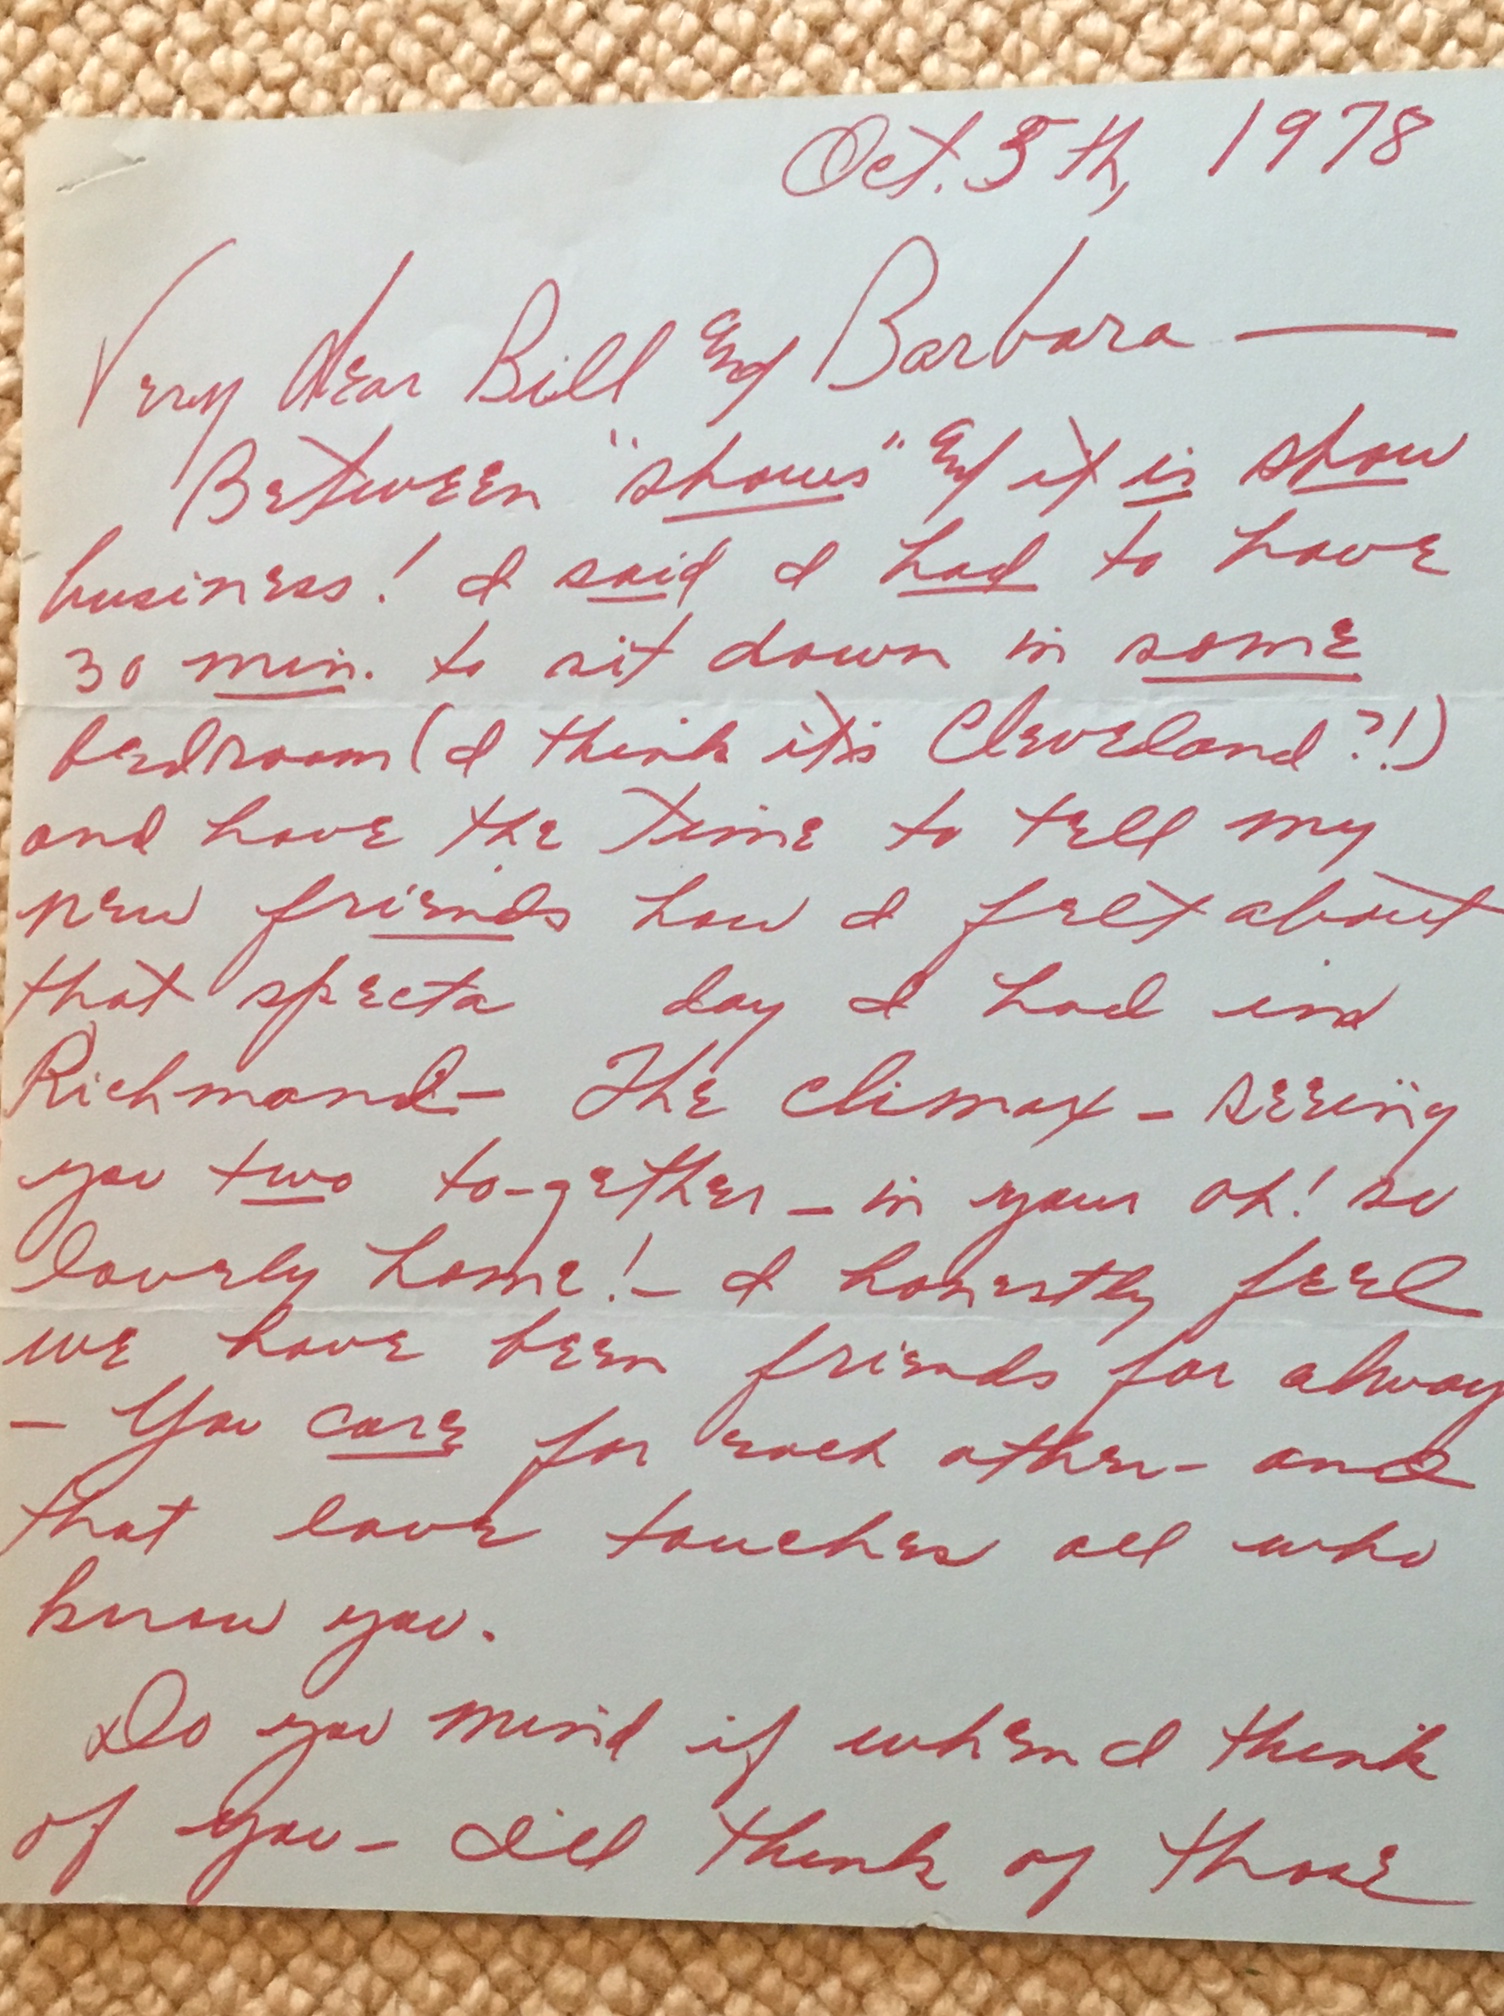 Oct. 5th, 1978
Very dear Bill and Barbara —
Between "shows" and it is show
business! I said I had to have
30 min. to sit down in some
bedroom (I think it's Cleveland?!)
and have the time to tell my
new friends how I felt about
that specta day I had in
Richmond – The climax – seeing
you two to-gether – in your oh! so
lovely home! – I honestly feel
we have been friends for alway
– You care for each other – and
that love touches all who
know you.
Do you mind if when I think
of you – I'll think of those